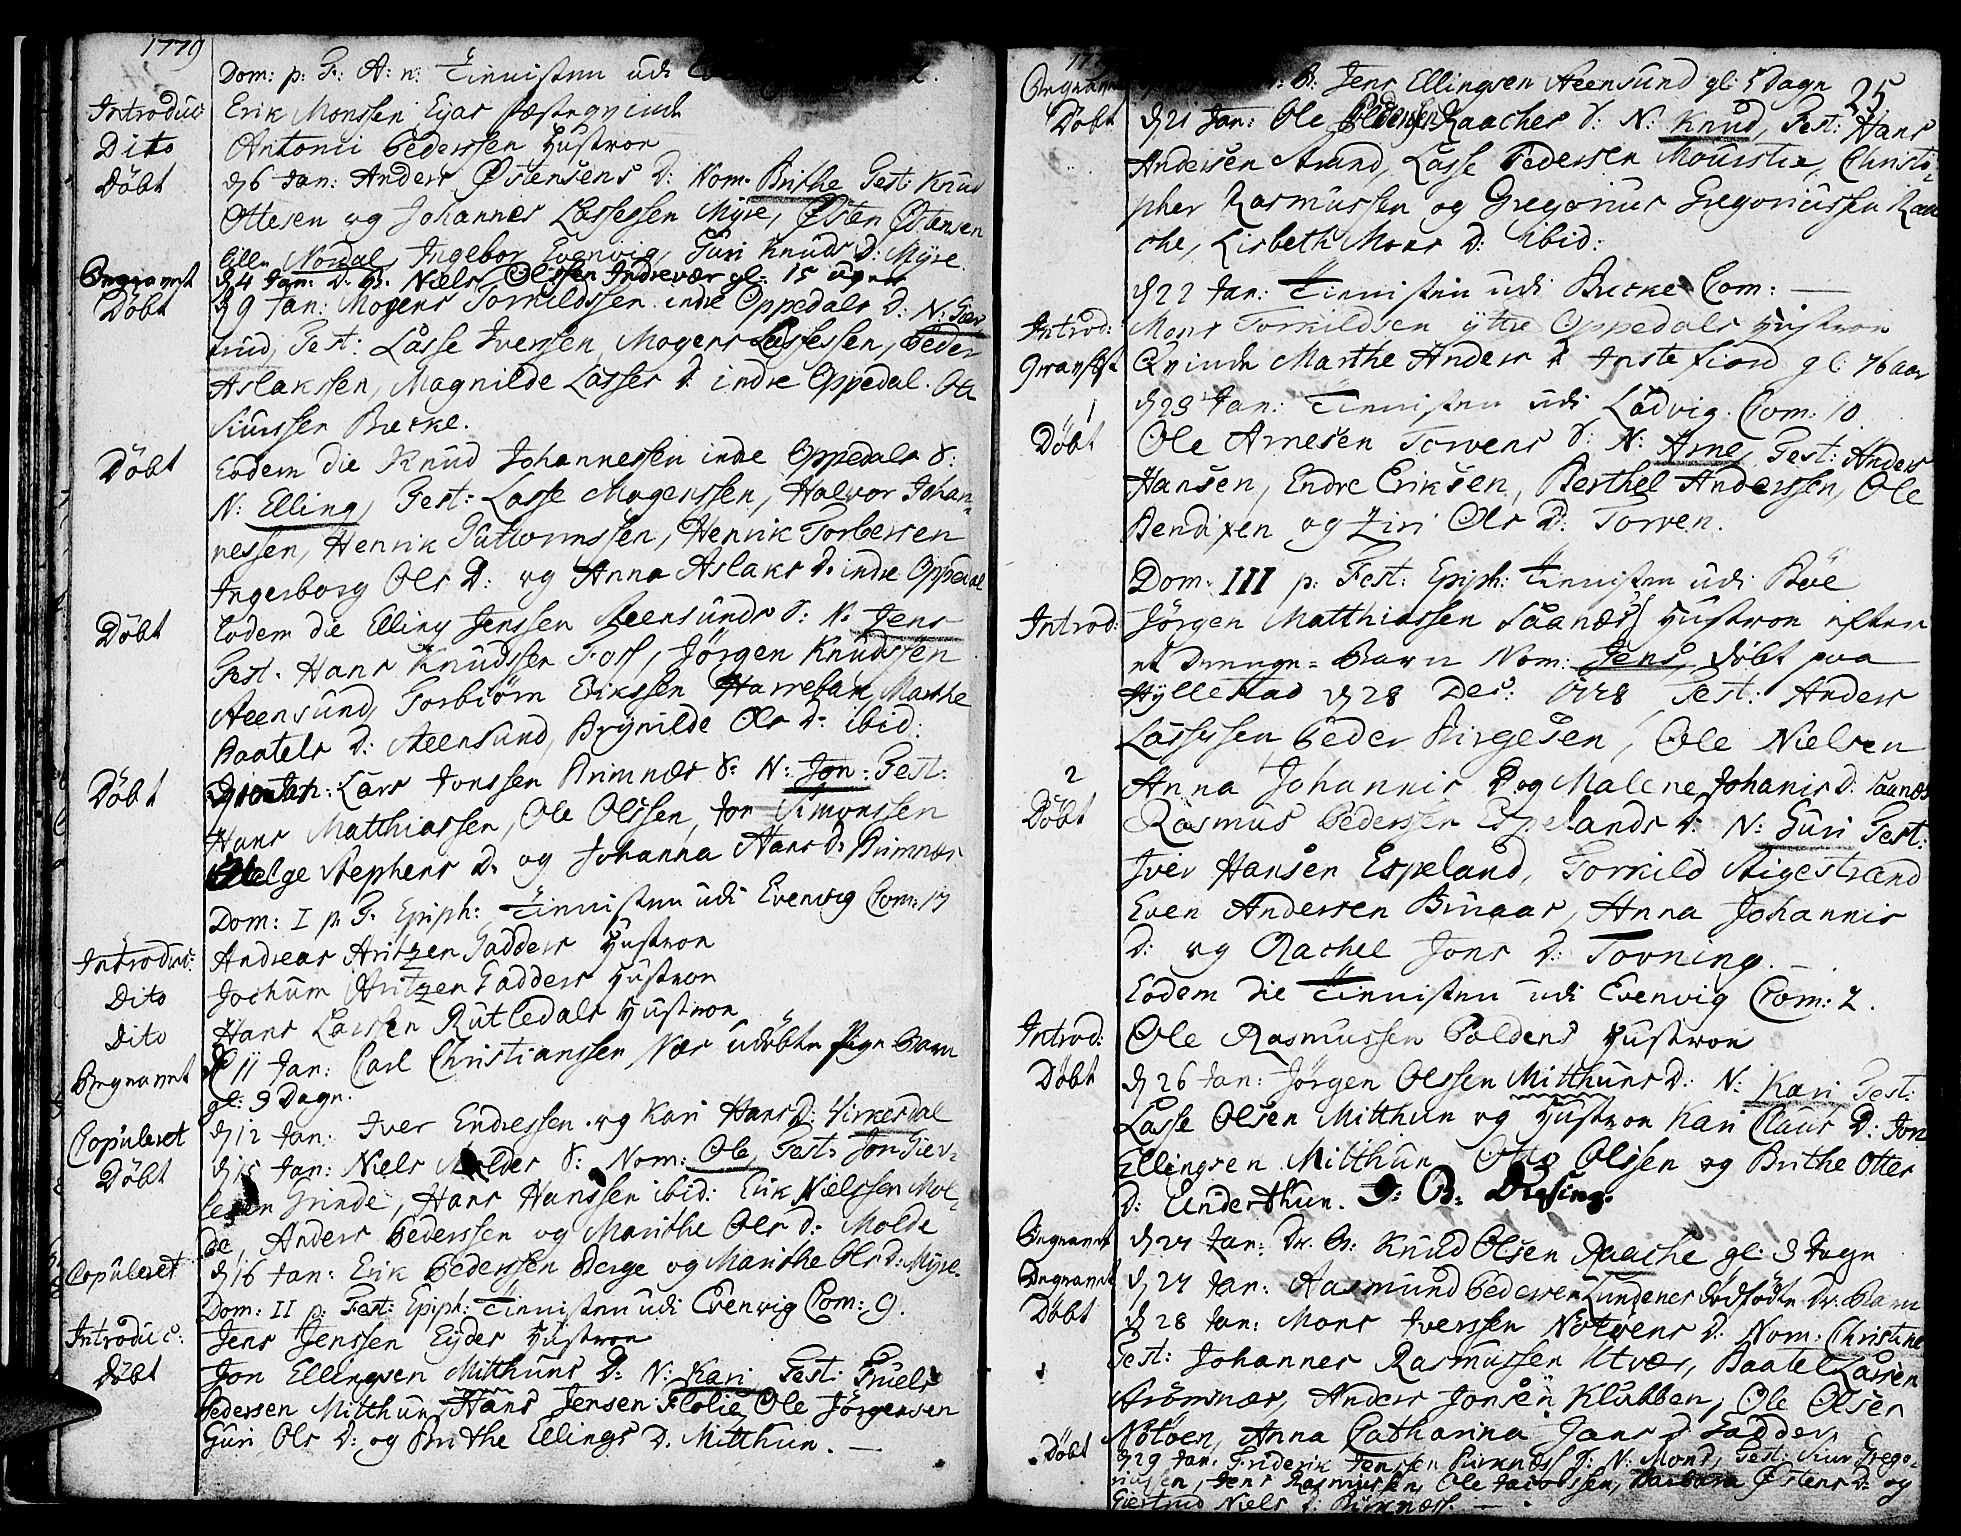 1779
Dom: p: F: A: n: Tienisten udi
Introduc: Erik Monssen Ejas
Dito Antoni Pederssen Hustroe
Döbt d 6 Jan: Anders Østensens D: Nom. Brithe Test: Knud
Ottesen og Johannes Lassessen Myre, Østen Østensen
Nordal, Ingebor Evenvig, Guri Knuds D: Myre
Begravet d 4 Jan: D. B. Niels Olssen Indrevær gl: 15 uger
Döbt d 9 Jan: Mogens Torkildssen indre Oppedals D: N: Giær
trud, Test: Lasse Iverssen, Mogens Lassessen, Peder
Aslakssen, Magnilde Lasses D: indre Oppedal. Ole
Siurssen Brekke.
Döbt Eodem die Knud Johannessen indre Oppedals S:
N: Elling, Test: Lasse Mogenssen, Halvor Johan-
nessen, Henrik Guttormssen, Henrik Torbersen
Ingerborg Ols D: og Anna Aslaks D: indre Oppedal
Döbt Eodem die Elling Jenssen Steensunds S: N: Jens
Test. Hans Knudssen Foss, Jörgen Knudssen
Steensund, Torbiörn Erikssen Harrebak, Marthe
Baatels D: Steensund, Brynilde Ols D: ibid:
Döbt Jan: Lars Jonssen Brimnæs S: N: Jon: Test:
Hans Matthiassen, Ole Olssen, Jon Simonssen
Helge Stephens D. og Johanna Hans D: Brimnæs
Dom: I p: F. Epiph: Tienisten udi Evenvig Com: 17
Introduc: Andreas Fritzen Gadders Hustroe
Dito Jochum Fritzen Gadders Hustroe
Dito Hans Larssen Rutledals Hustroe
Begravet d 11 Jan: Carl Christianssen Nær udöbte Pige Barn
gl: 3 Dage.
Copuleret d 12 Jan: Iver Endressen og Kari Hans D: Virkesdal
Döbt d 15 Jan: Niels Molder S: Nom: Ole, Test: Jon Giær-
Grinde, Hans Hanssen ibid: Erik Nielssen Mol-
de, Anders Pederssen og Marithe Ols D: Molde
Copuleret d 16 Jan: Erik Pederssen Berge og Marithe Ols D: Myre.
Dom: II p: Fest: Epiph: Tienisten udi Evenvig Com: 9.
Introduc: Jens Jenssen Eyder Hustroe
Döbt Jon Ellingsen Mitthuns D: N: Kari, Test: Truels
Pedersen Mitthun, Hans Jensen Flolie, Ole Jörgensen
Guri Ols D: og Brithe Ellings D. Mitthun.
25
Begravet D: B: Jens Ellingsen Steensund gl: Dage
Döbt d 21 Jan: Ole Raaches S: N: Knud, Test: Hans
Andersen Strand, Lasse Pedersen Mourstie, Christo-
pher Rasmussen og Gregorius Gregoriussen Raa
che, Lisbeth Mons D: ibid:
d 22 Jan: Tienisten udi Brekke Com:
Introd: Mons Torkildsen yttre Oppedals Hustroe
Qvinde Marthe Anders D Instefiord gl: 76 aar
d 23 Jan: Tienisten udi Ladvig. Com: 10
1
Döbt Ole Arnesen Torvens S: N: Arne, Test: Anders
Hansen, Endre Eriksen, Berthel Anderssen, Ole
Bendixen og Ziri Ols D: Torven.
Dom: III p: Fest: Epiph: Tienisten udi Böe
Introd: Jörgen Matthiassen Saanæs Hustroe efter
et Drenge-Barn Nom: Jens, döbt paa
Hyllestad d 28 Dec: 1778 Test: Anders
Lassessen Peder Birgesen, Ole Nielsen
Anna Johannis D og Malene Johanis D: Saanæs
2
Döbt Rasmus Pedersen Espelands D: N: Guri Test:
Iver Hansen Espeland, Torkild Stigestrand
Even Andersen Bruaas, Anna Johannis
D: og Rachel Jons D: Torning.
Eodem die Tienisten udi Evenvig Com: 2.
Introd: Ole Rasmussen Poldens Hustroe
Döbt d 26 Jan: Jörgen Olssen Mitthuns D: N: Kari Test:
Lasse Olsen Mitthun og Hustroe Kari Claus D: Jon
Ellingsen Mitthun, Otto Olssen og Brithe Ottes
D: Underthun.
Begravet d 27 Jan: Dr. B: Knud Olsen Raache gl: 3 Dage
Begravet d 27 Jan: Aasmund Pedersen Lundenes dödfödte Dr. Barn
Döbt d 28 Jan: Mons Iverssen Notöens D: Nom: Christine
Test: Johannes Rasmussen Utvær, Baatel Larsen
Strömsnæs, Anders Jonsen Klubben, Ole Olsen
Notöen, Anna Catharina Jans D Gadder.
Döbt d 29 Jan: Friderik Jenssen Birknæs S: N: Mons, Test: Siur Grego-
riussen, Jens Rasmussen, Ole Jacobssen, Barbara Østens D: og
Giertrud Niels D: Birknæss.